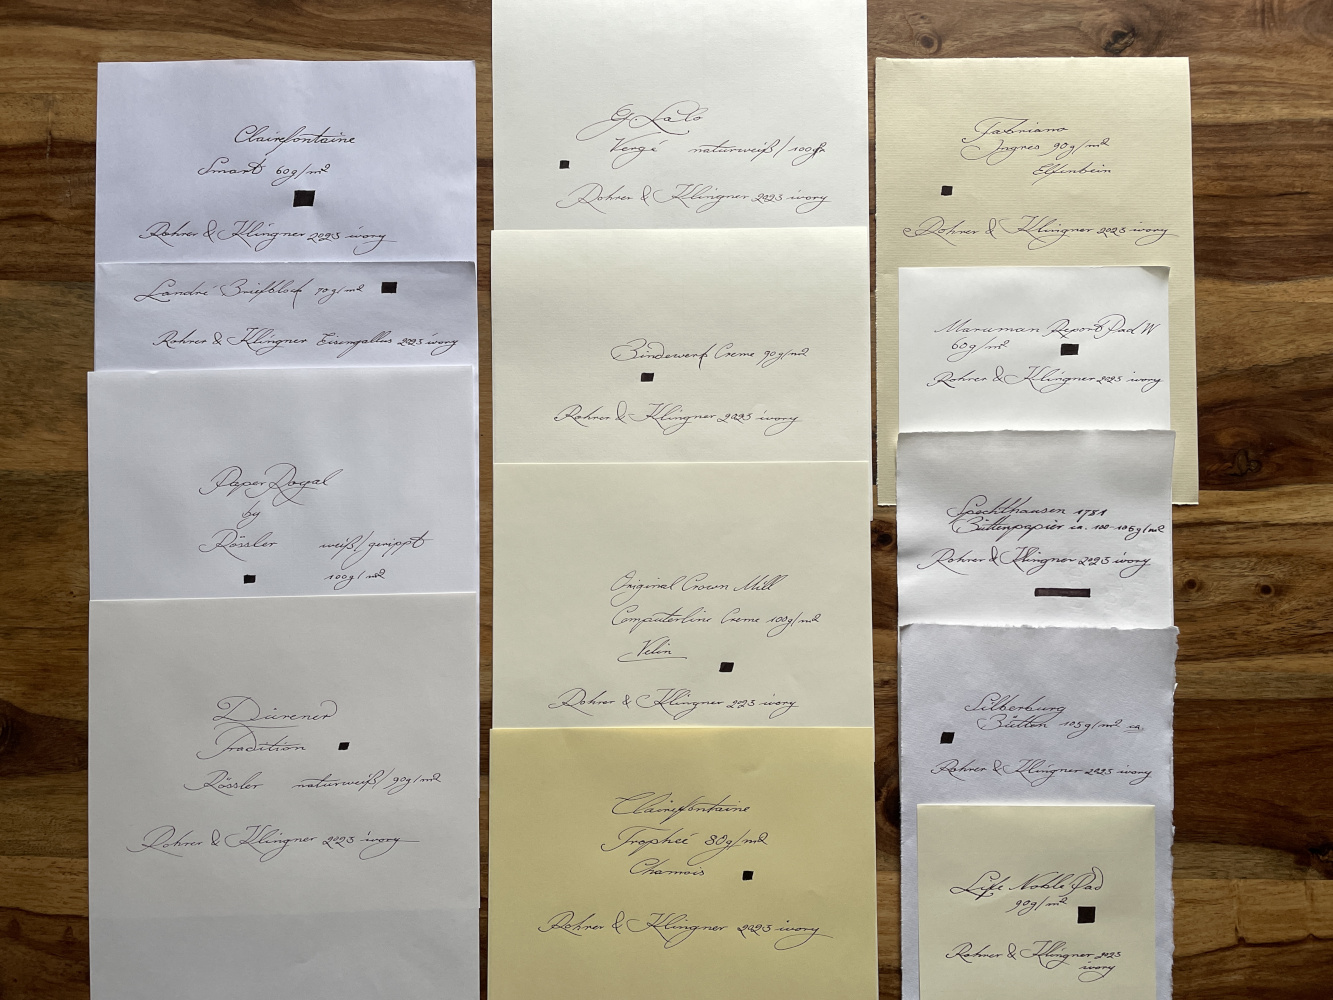 Clairefontaine
Smart 60g/m²
Rohrer & Klingner 2023 ivory
Landré Briefblock 70g/m²
Rohrer & Klingner Eisengallus 2023 ivory
Paper Royal
by
Rössler weiß/gerippt
100g/m²
Dürener
Tradition
Rössler naturweiß/90g/m²
Rohrer & Klingner 2023 ivory
G. Lalo
Vergé naturweiß/100gr
Rohrer & Klingner 2023 ivory
Bindewerk Creme 90g/m²
Rohrer & Klingner 2023 ivory
Original Crown Mill
Computerline Creme 100g/m²
Velin
Rohrer & Klingner 2023 ivory
Clairefontaine
Trophée 80g/m²
Chamois
Rohrer & Klingner 2023 ivory
Fabriano
Ingres 90g/m²
Elfenbein
Rohrer & Klingner 2023 ivory
Maruman Report Pad W
60g/m²
Rohrer & Klingner 2023 ivory
Spechthausen 1781
Büttenpapier ca. 100-105g/m²
Rohrer & Klingner 2023 ivory
Silberburg
Bütten 105g/m² ca.
Rohrer & Klingner 2023 ivory
Life Noble Pad
90g/m²
Rohrer & Klingner 2023
ivory